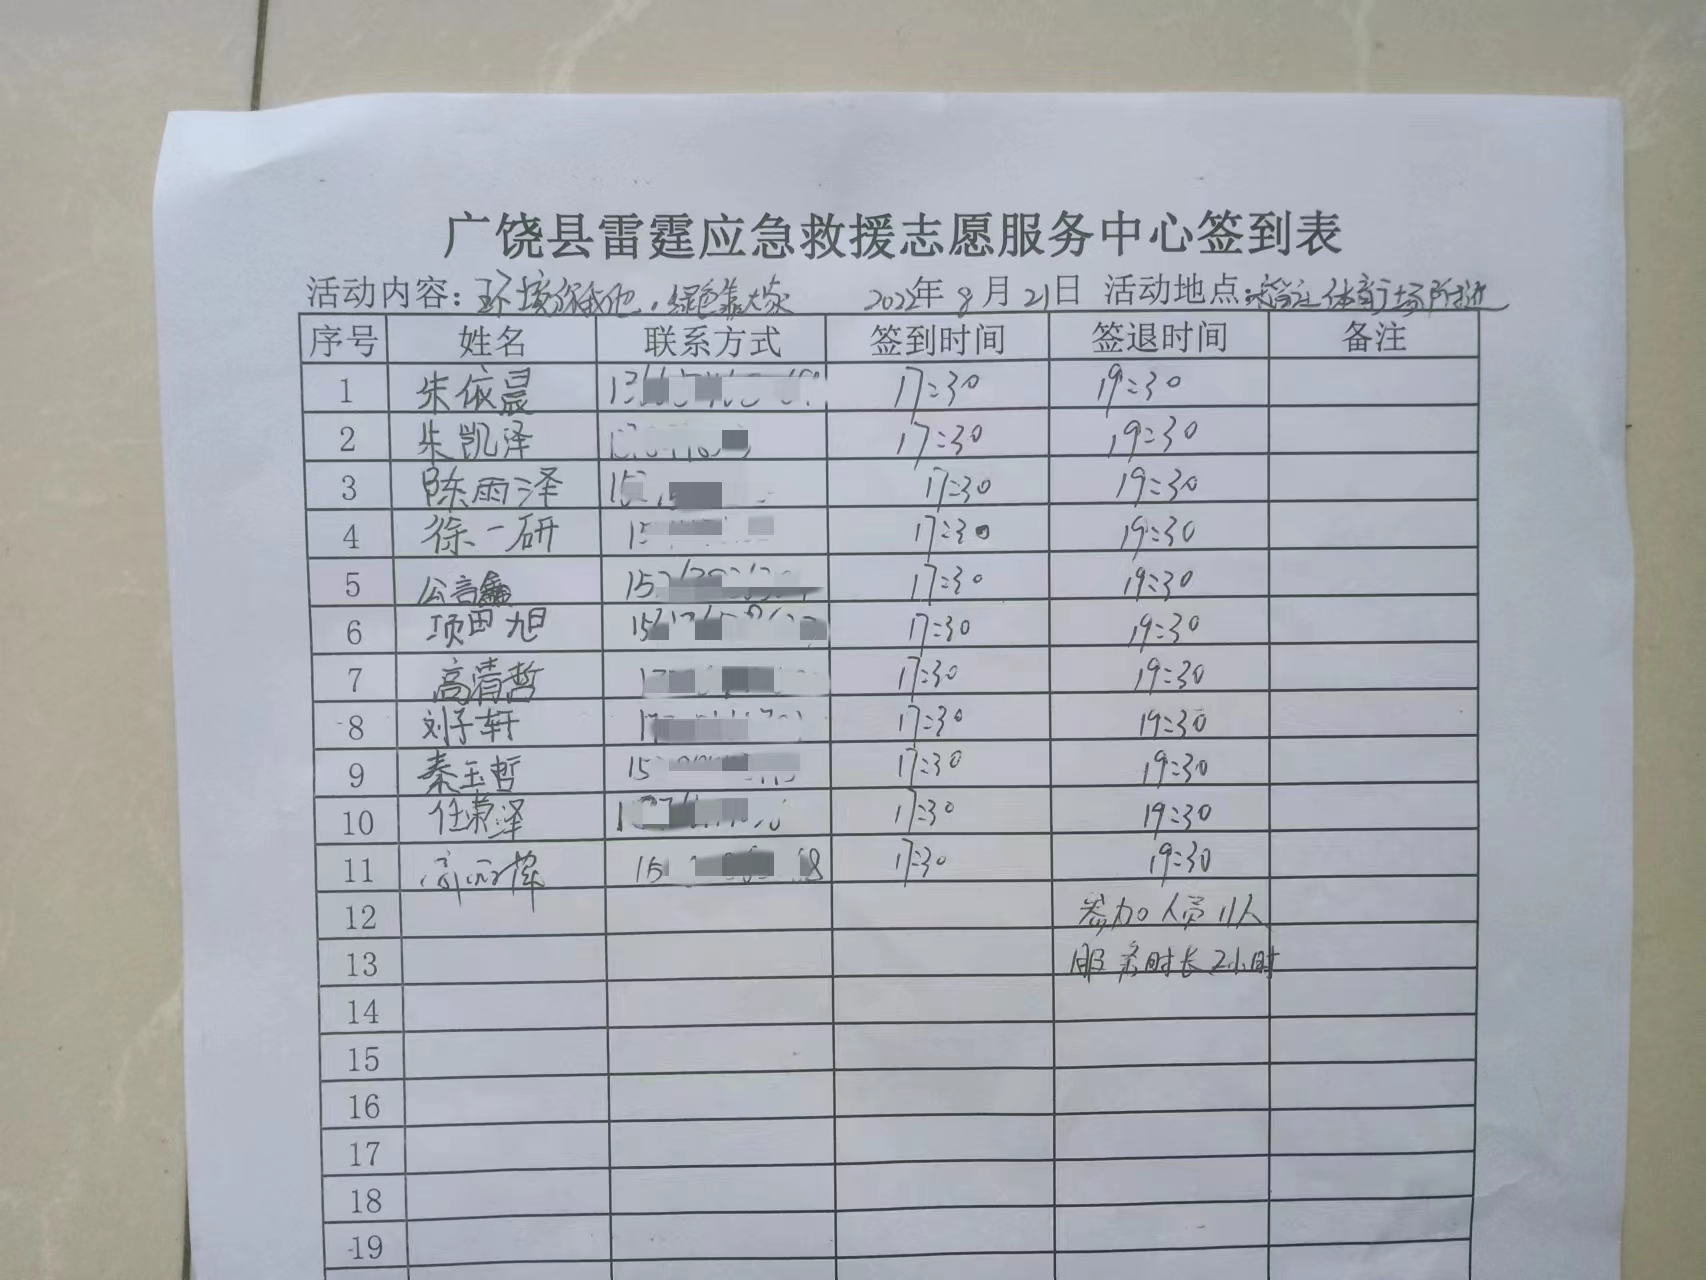 广饶县雷霆应急救援志愿服务中心签到表
活动内容：环境你我他，绿色靠大家 2022年8月21日 活动地点：体育广场附近
序号 姓名 联系方式 签到时间 签退时间 备注
1 朱依晨 17:30 19:30
2 朱凯泽 17:30 19:30
3 陈雨泽 15 17:30 19:30
4 徐一研 15 17:30 19:30
5 公言鑫 15 17:30 19:30
6 项田旭 15 17:30 19:30
7 高清哲 17:30 19:30
8 刘子轩 17:30 19:30
9 秦玉哲 15 17:30 19:30
10 任荣泽 17:30 19:30
11 15 17:30 19:30
12 参加人员11人
13 服务时长2小时
14
15
16
17
18
19